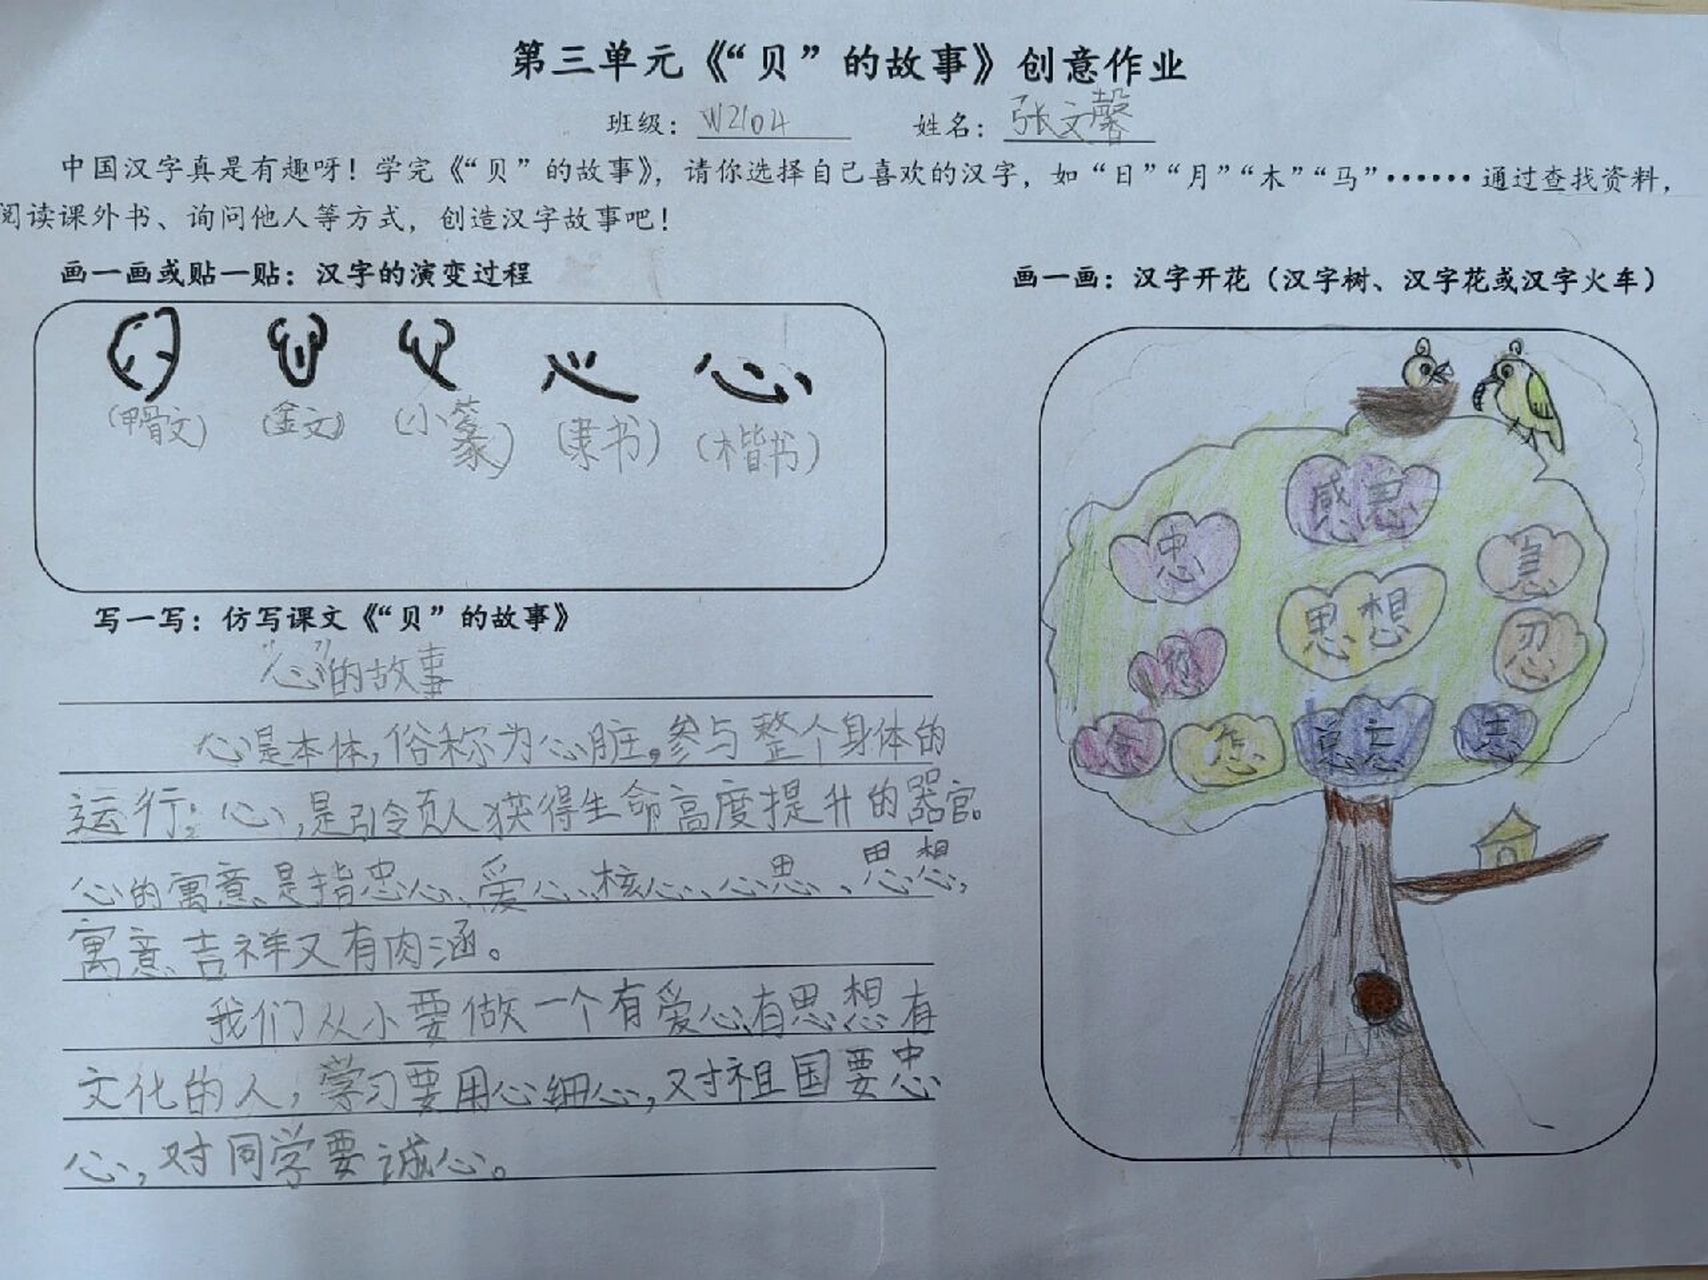 第三单元《“贝”的故事》创意作业
班级：W2104 姓名：张文馨
中国汉字真是有趣呀！学完《“贝”的故事》，请你选择自己喜欢的汉字，如“日”“月”“木”“马”……通过查找资料，
阅读课外书、询问他人等方式，创造汉字故事吧！
画一画或贴一贴：汉字的演变过程
心 心
(甲骨文) (金文) (小篆) (隶书) (楷书)
写一写：仿写课文《“贝”的故事》
“心”的故事
心是本体，俗称为心脏。参与整个身体的
运行；心，是引领人获得生命高度提升的器官。
心的寓意、是指忠心、爱心、核心、心思、思想，
寓意吉祥又有内涵。
我们从小要做一个有爱心有思想有
文化的人，学习要用心细心，对祖国要忠
心，对同学要诚心。
画一画：汉字开花（汉字树、汉字花或汉字火车）
感恩
忠
息
思想
忍
您
念
怎
忘
志